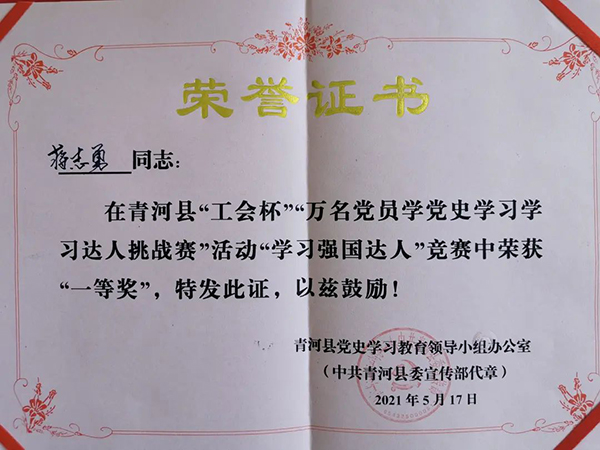 荣誉证书
蒋志勇 同志：
在青河县“工会杯”“万名党员学党史学习学
习达人挑战赛”活动“学习强国达人”竞赛中荣获
“一等奖”，特发此证，以兹鼓励！
青河县党史学习教育领导小组办公室
（中共青河县委宣传部代章）
2021年5月17日